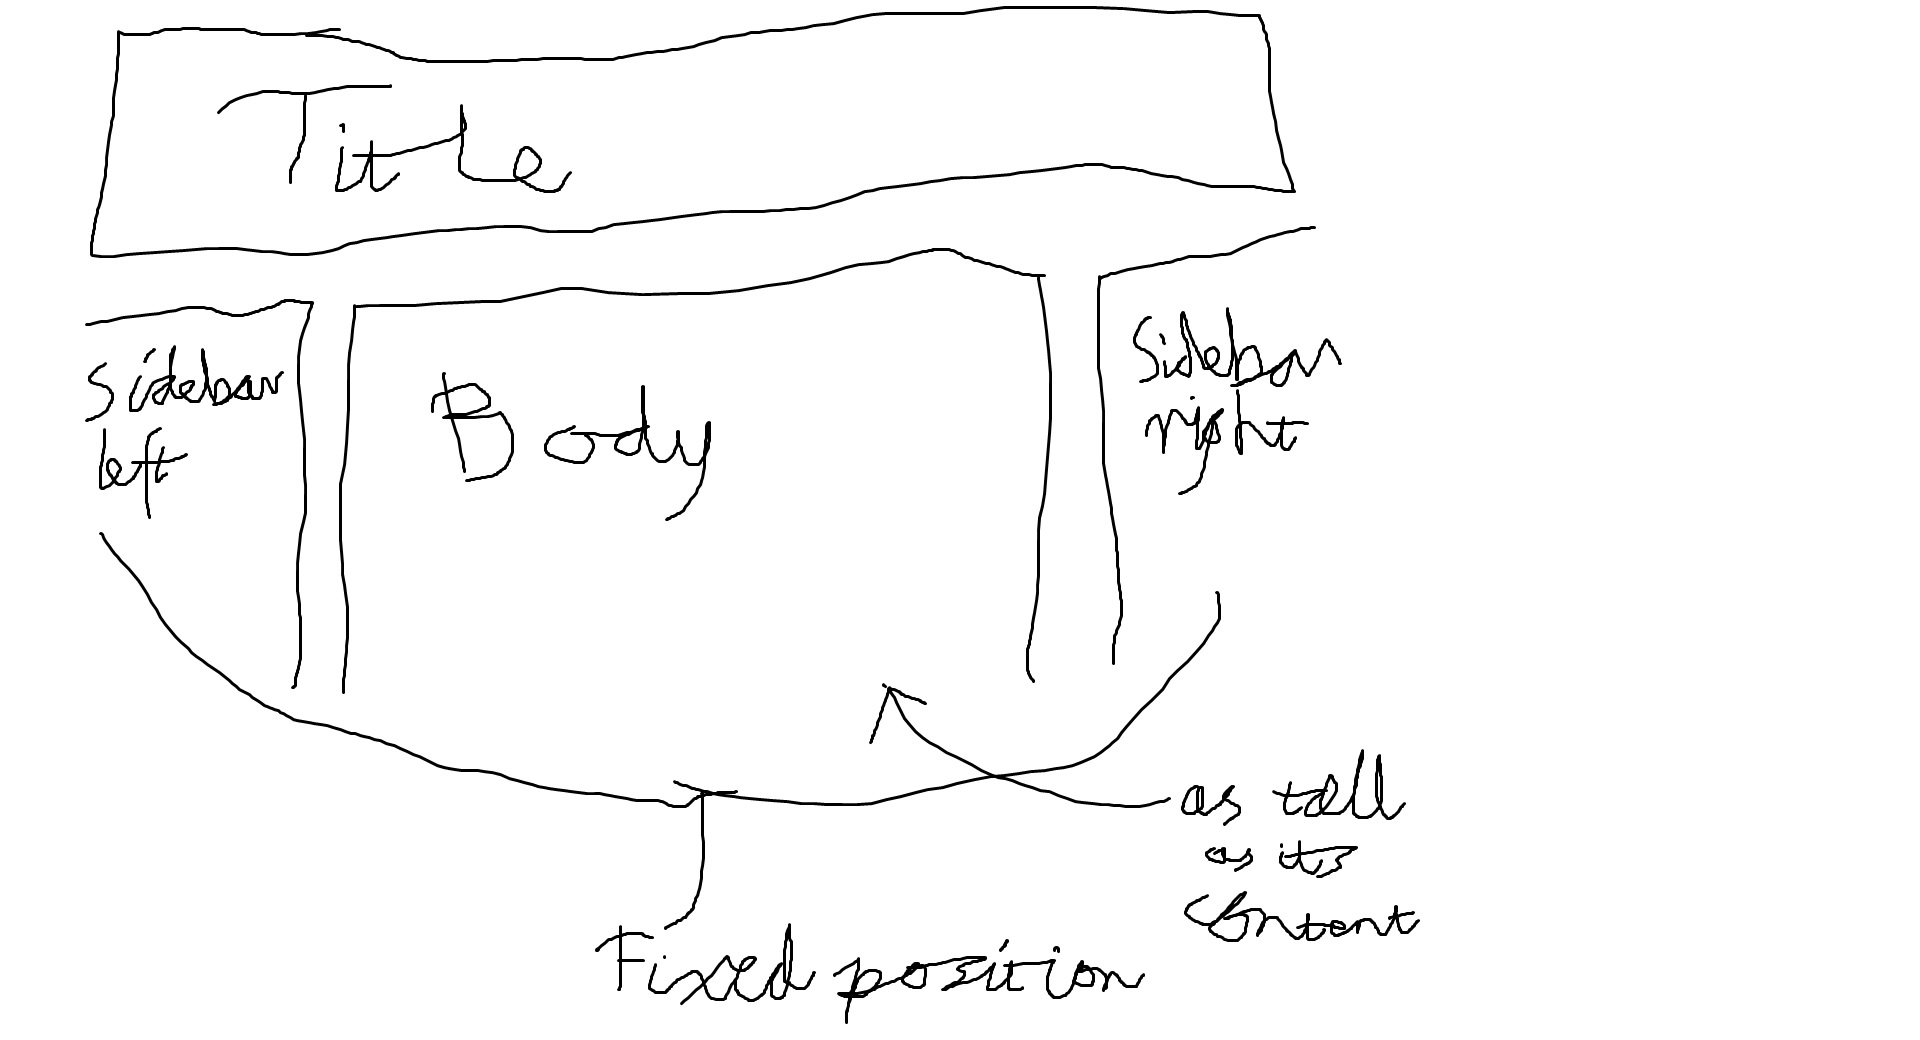 Title
Sidebar
left
Body
Sidebar
right
as tall
as its
content
Fixed position